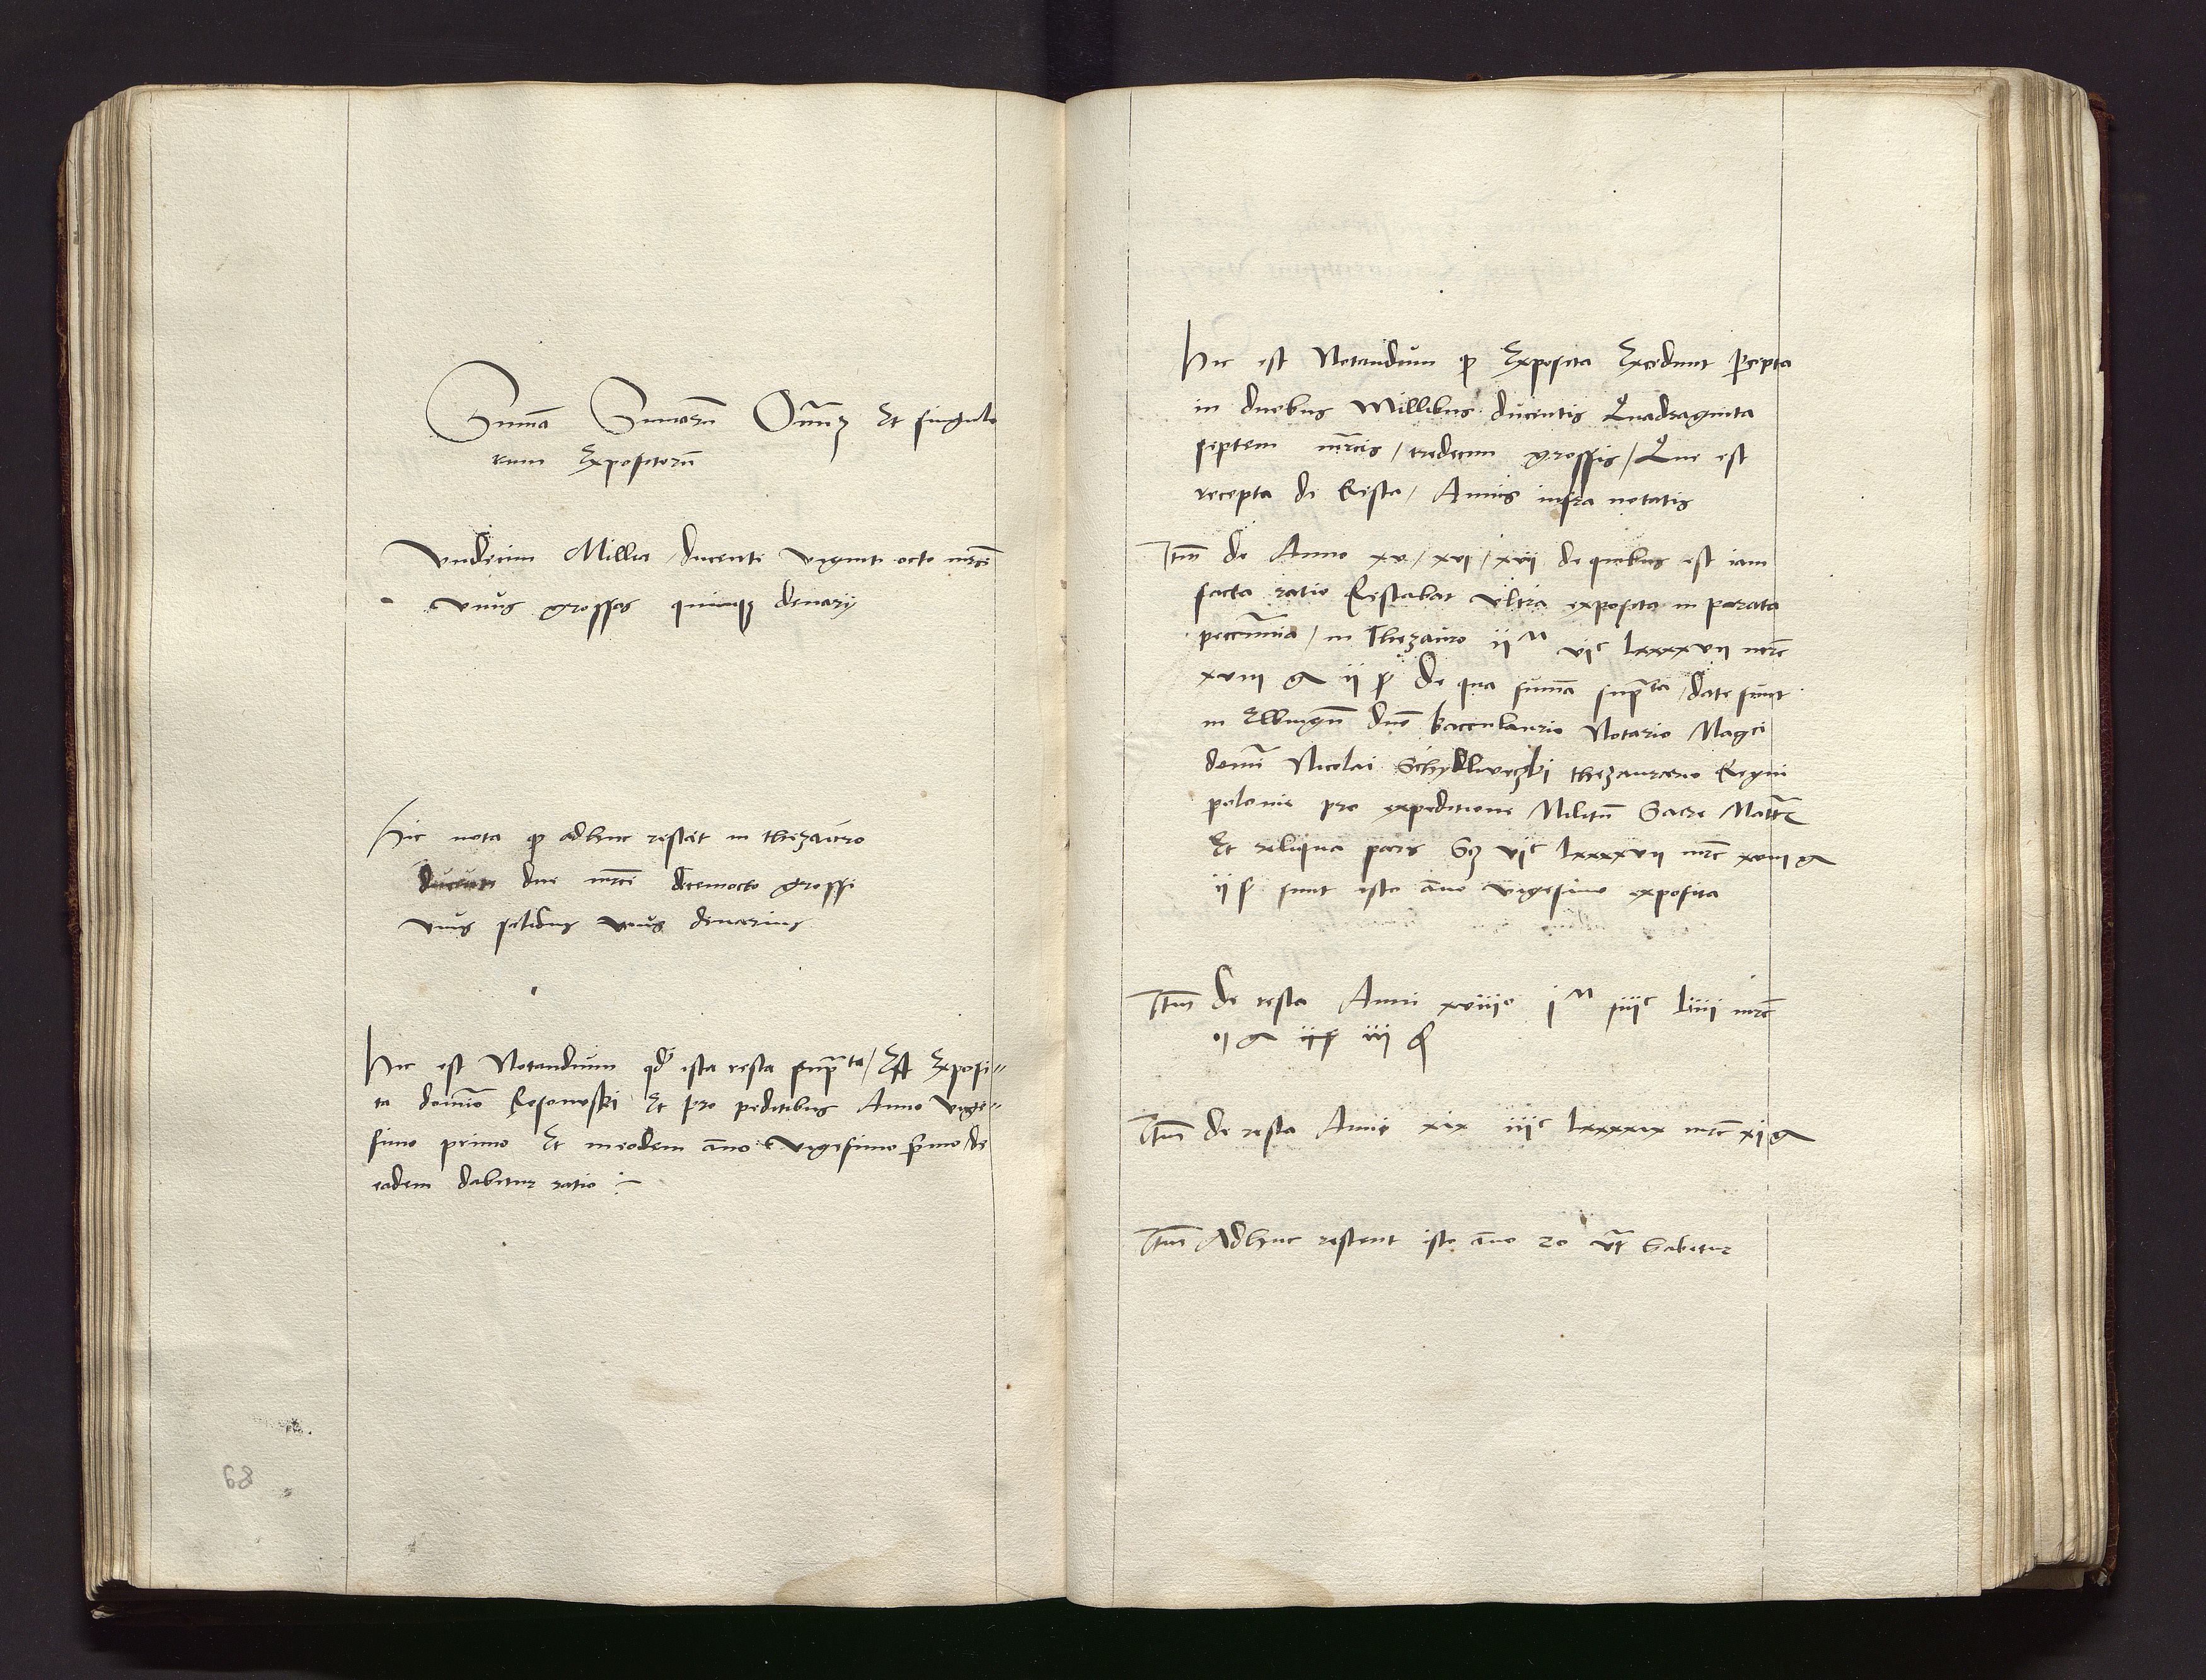 Sum̅a Sum̅aru̅ Om̅niuꝫ Et singulo
rum Expositoru̅
Vndecim Millia, ducenti viginti octo mrce
vnus grossus quinqꝫ denarij
Hic nota qꝫ adhuc restat in thezauro
due mrce decemocto grossi
vnus solidus vnus denarius
Hic est Notandum qd ista resta supᵗᵃ / Est Exposi//
ta domino Rosonowski Et pro peditibus Anno vige//
simo primo Et in eodem anno vigesimo primo de
eadem dabitur ratio
68
Hic est Notandum qꝫ Exposita Excedunt percepta
in duobus Millibus ducentis Quadraginta
septem mrcis / tredecim grossis / Que est
recepta de Resta / Annis infra notatis
Itm de Anno xv / xvi / xvii de quibus est iam
facta ratio Restabat vltra exposita in parata
peccunnia / in Thezauro ijᴹ vjᶜ lxxxxvij mrc
xviii g ij s De qua suma suprata / date sunt
in Elbingu̅ dno baccalaurio Notario Magci
domi̅ Nicolai Schydlweczki thezaurario Regni
polonie pro expeditione Militu̅ Sacre Mattis
Et reliqua pars Sꝫ vjᶜ lxxxxvij mrc xviii g
ij s sunt isto anno vigesimo exposita
Itm de resta Anni xviijº jᴹ iiijᶜ liiij mrc
ijs iij d
Itm de resta Anni xix iiijᶜ lxxxxix mrc xj g
Itm Adhuc restant isto anno 20 vt habetur